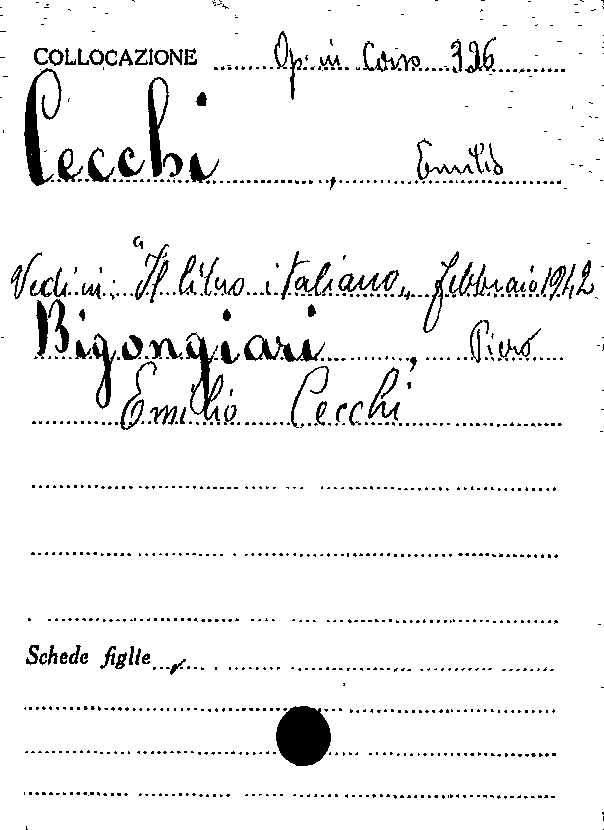 COLLOCAZIONE Op. in Corso 326
Cecchi, Emilio
Vedi in: "Il libro italiano„ febbraio 1942
Bigongiari, Piero
Emilio Cecchi
Schede figlie